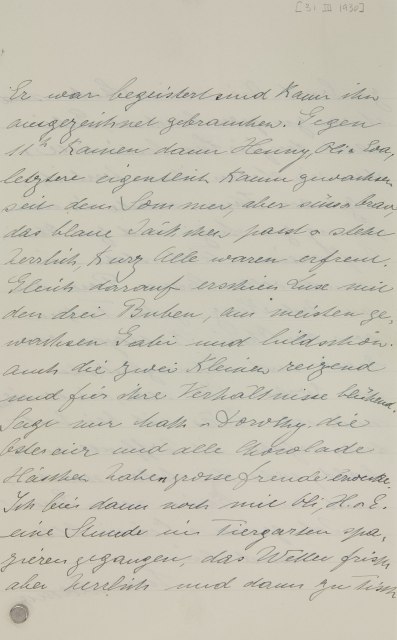 [31 III 1930]
Er war begeistert und kann ihn
ausgezeichnet gebrauchen. Gegen
11h kamen dann Henny, Oli + Eva,
letztere eigentlich kaum gewachsen
seit dem Sommer, aber süss + brav,
das blaue Jäckchen passt + steht
herrlich, kurz Alle waren erfreut.
Gleich darauf erschien Luse mit
den drei Buben, am meisten ge-
wachsen Gabi und bildschön.
auch die zwei Kleinen reizend
und für ihre Verhältnisse blühend.
Sage nur Kath + Dorothy, die
Ostereier und alle Chocolade
Häschen haben grosse Freude erweckt.
Ich bin dann noch mit Oli, H. + E.
eine Stunde im Tiergarten spa-
zieren gegangen, das Wetter frisch
aber herrlich und dann zu Tisch